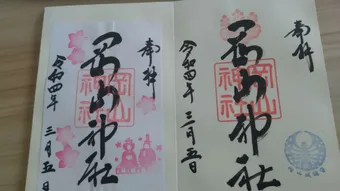 奉拝
岡山神社
岡山
神社
令和四年
三月五日
奉拝
岡山神社
岡山
神社
令和四年
三月五日